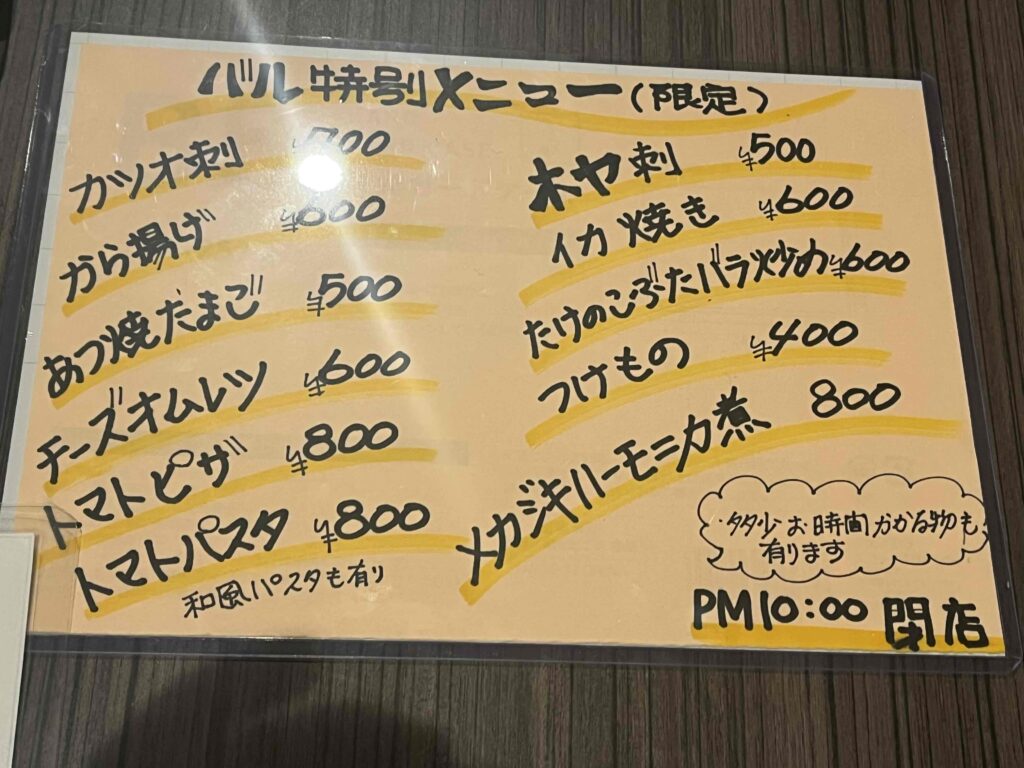 バル特別メニュー(限定)
カツオ刺 ¥700
から揚げ ¥600
あつ焼たまご ¥500
チーズオムレツ ¥600
トマトピザ ¥800
トマトパスタ ¥800
和風パスタも有り
ホヤ刺 ¥500
イカ焼き ¥600
たけのこぶたバラ炒め ¥600
つけもの ¥400
メカジキハーモニカ煮 800
・多少お時間かかる物も
有ります
PM10:00 閉店